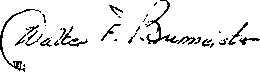 Walter F. Burmeister